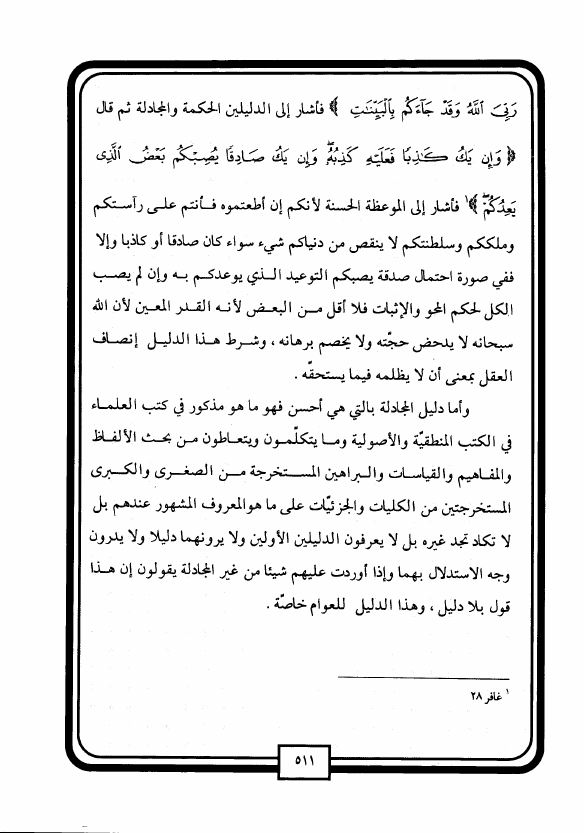 رَبِّيَ ٱللَّهُ وَقَدْ جَآءَكُم بِٱلْبَيِّنَٰتِ ﴾ فأشار إلى الدليلين الحكمة والمجادلة ثم قال
﴿ وَإِن يَكُ كَٰذِبًا فَعَلَيْهِ كَذِبُهُۥ ۖ وَإِن يَكُ صَادِقًا يُصِبْكُم بَعْضُ ٱلَّذِى
يَعِدُكُمْ ۖ ﴾١ فأشار إلى الموعظة الحسنة لأنكم إن أطعتموه فأنتم على رآستكم
وملككم وسلطنتكم لا ينقص من دنياكم شيء سواء كان صادقا أو كاذبا وإلا
ففي صورة احتمال صدقة يصبكم التوعيد الذي يوعدكم به وإن لم يصب
الكل لحكم المحو والإثبات فلا أقل من البعض لأنه القدر المعين لأن الله
سبحانه لا يدحض حجّته ولا يخصم برهانه ، وشرط هذا الدليل إنصاف
العقل بمعنى أن لا يظلمه فيما يستحقّه .
وأما دليل المجادلة بالتي هي أحسن فهو ما هو مذكور في كتب العلماء
في الكتب المنطقيّة والأصولية وما يتكلّمون ويتعاطون من بحث الألفاظ
والمفاهيم والقياسات والبراهين المستخرجة من الصغرى والكبرى
المستخرجتين من الكليات والجزئيّات على ما هو المعروف المشهور عندهم بل
لا تكاد تجد غيره بل لا يعرفون الدليلين الأولين ولا يرونهما دليلا ولا يدرون
وجه الاستدلال بهما وإذا أوردت عليهم شيئا من غير المجادلة يقولون إن هذا
قول بلا دليل ، وهذا الدليل للعوام خاصّة .
١ غافر ٢٨
٥١١